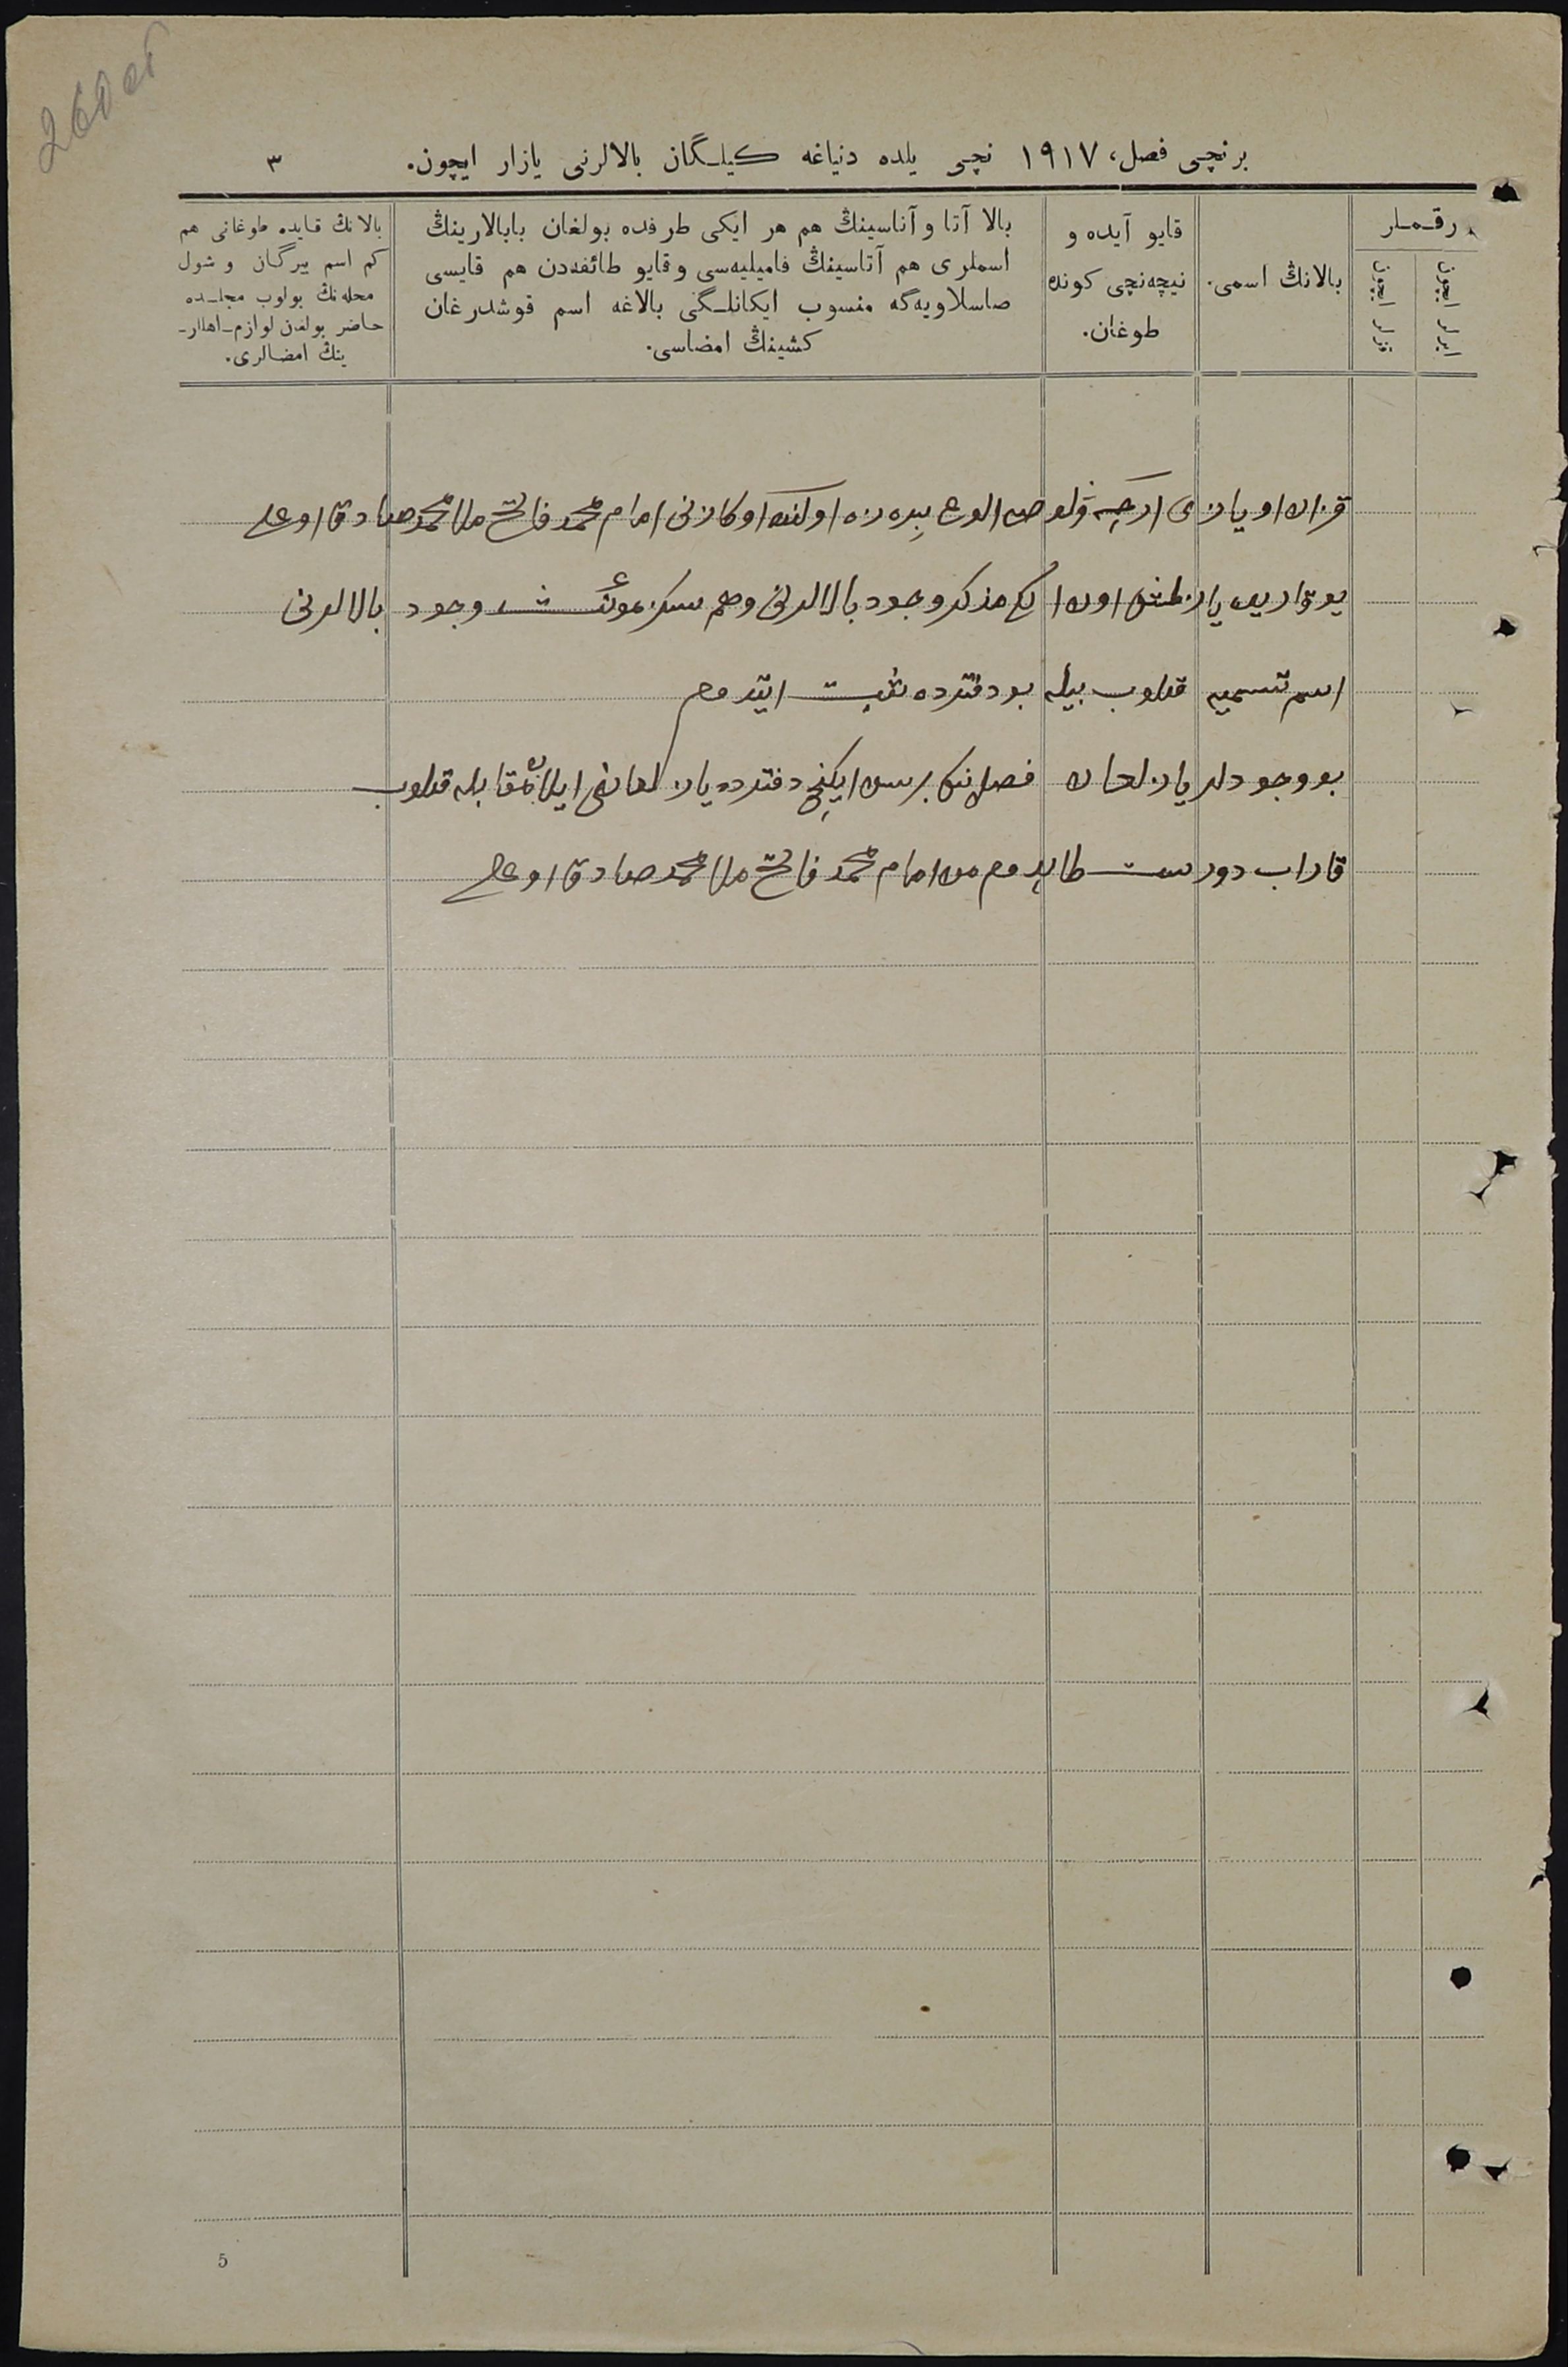 260 об
برنچی فصل، ١٩١٧ نچی یلده دنیاغه کیلـگان بالالرنی یازار ایچون.
٣
رقـمـلر
ایرلر ایچون
قزلر ایچون
بالانڭ اسمی.
قایو آیده و
نیچه‌نچی کونده
طوغان.
بالا آتا و آناسینڭ هم هر ایکی طرفده بولغان بابالارینڭ
اسملری هم آتاسینڭ فامیلیه‌سی و قایو طائفه‌دن هم قایسی
صاسلاویه‌گه منسوب ایکانلـگی بالاغه اسم قوشدرغان
کشینڭ امضاسی.
بالانڭ قـایده طوغانی هم
کم اسم بیرگـان و شول
محله‌نڭ بولوب مجلـسده
حـاضر بولغان لوازم-اهللر-
ینڭ امضـالری.
قزان اویازی امام محمد فاتح ملا محمد صادق اوغلی
یوقاریده یازلمش اون مذکر وجود بالالرنی وهم سکز مونث وجود بالالرنی
اسم تسمیه قیلوب بیله بو دفترده ثبت ایتدوم
بو وجودلر یازلغان فصلنڭ برسن ایکنچی دفترده یازلغانی ایلان مقابله قیلوب
قاراب دورست طابدوم من امام محمد فاتح ملا محمد صادق اوغلی
5